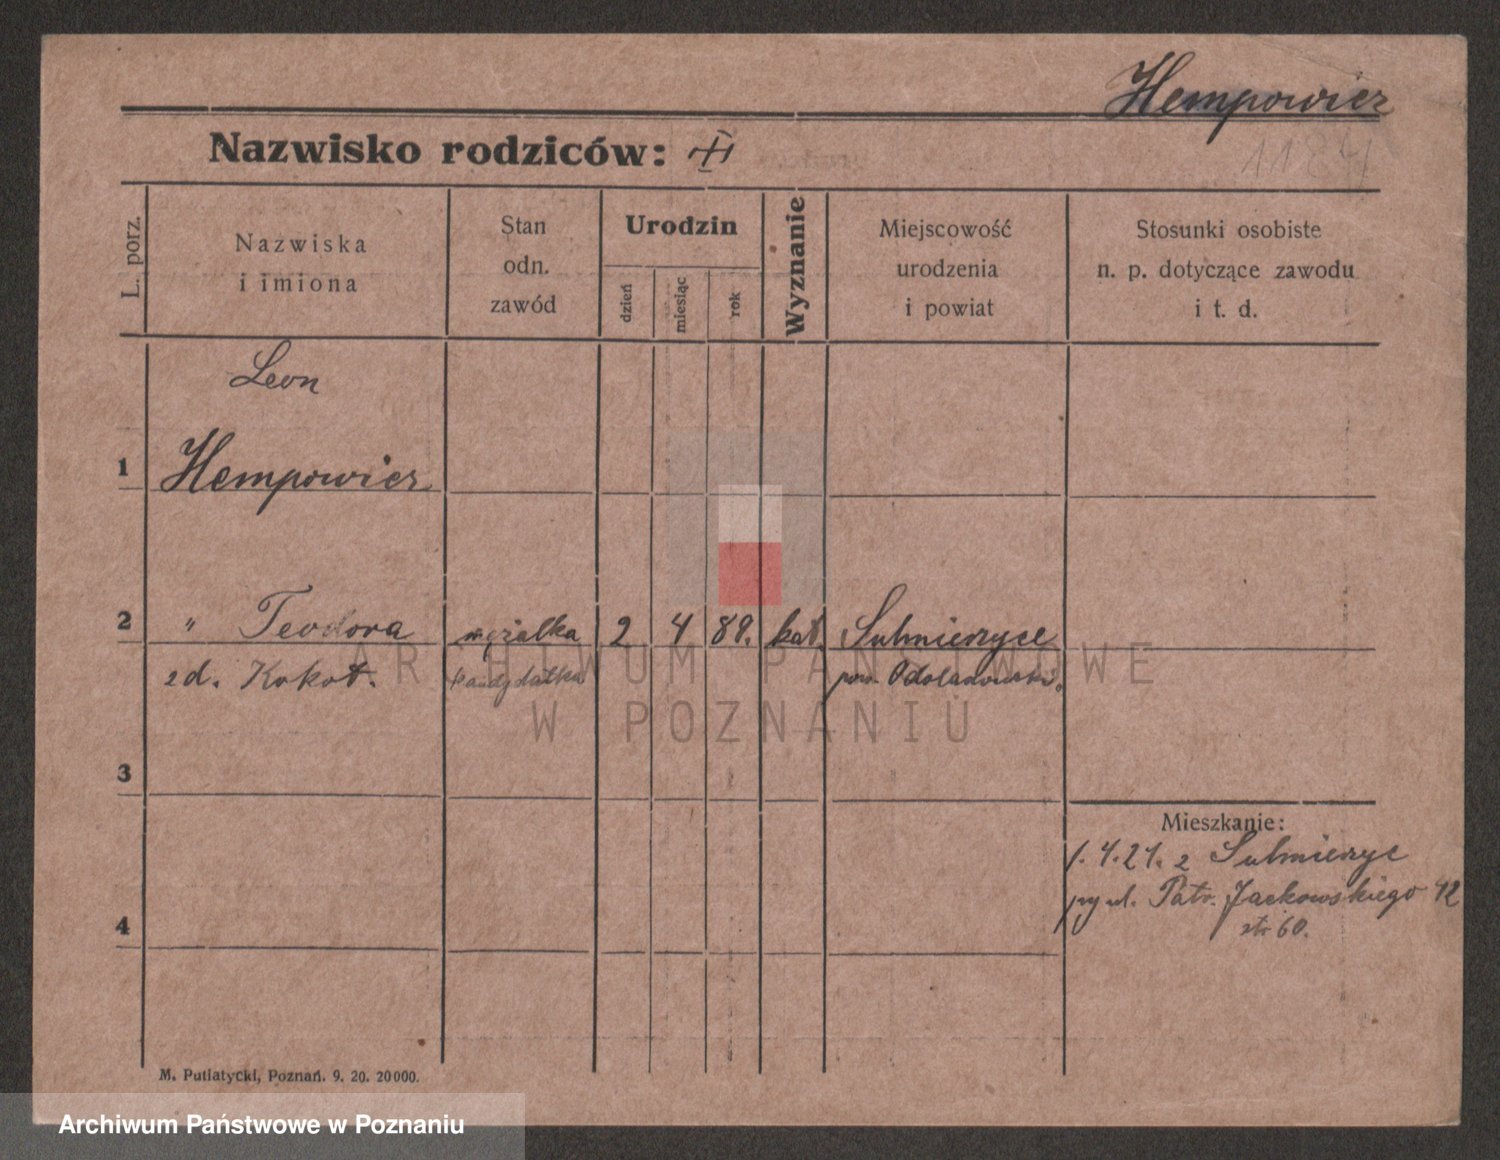 Hempowicz
1187
Nazwisko rodziców:
L. porz.
Nazwiska
i imiona
Stan
odn.
zawód
Urodzin
dzień
miesiąc
rok
Wyznanie
Miejscowość
urodzenia
i powiat
Stosunki osobiste
n. p. dotyczące zawodu
i t. d.
Leon
1 Hempowicz
2 " Teodora mężatka 2 4 89. kat. Sulmierzyce
zd. Kokot. pow. Odolanowski.
ARCHIWUM PAŃSTWOWE
W POZNANIU
3
Mieszkanie:
1. 4. 21. z Sulmierzyc
4 Patr. Jackowskiego 42
str 60.
M. Putiatycki, Poznań. 9. 20. 20000.
Archiwum Państwowe w Poznaniu